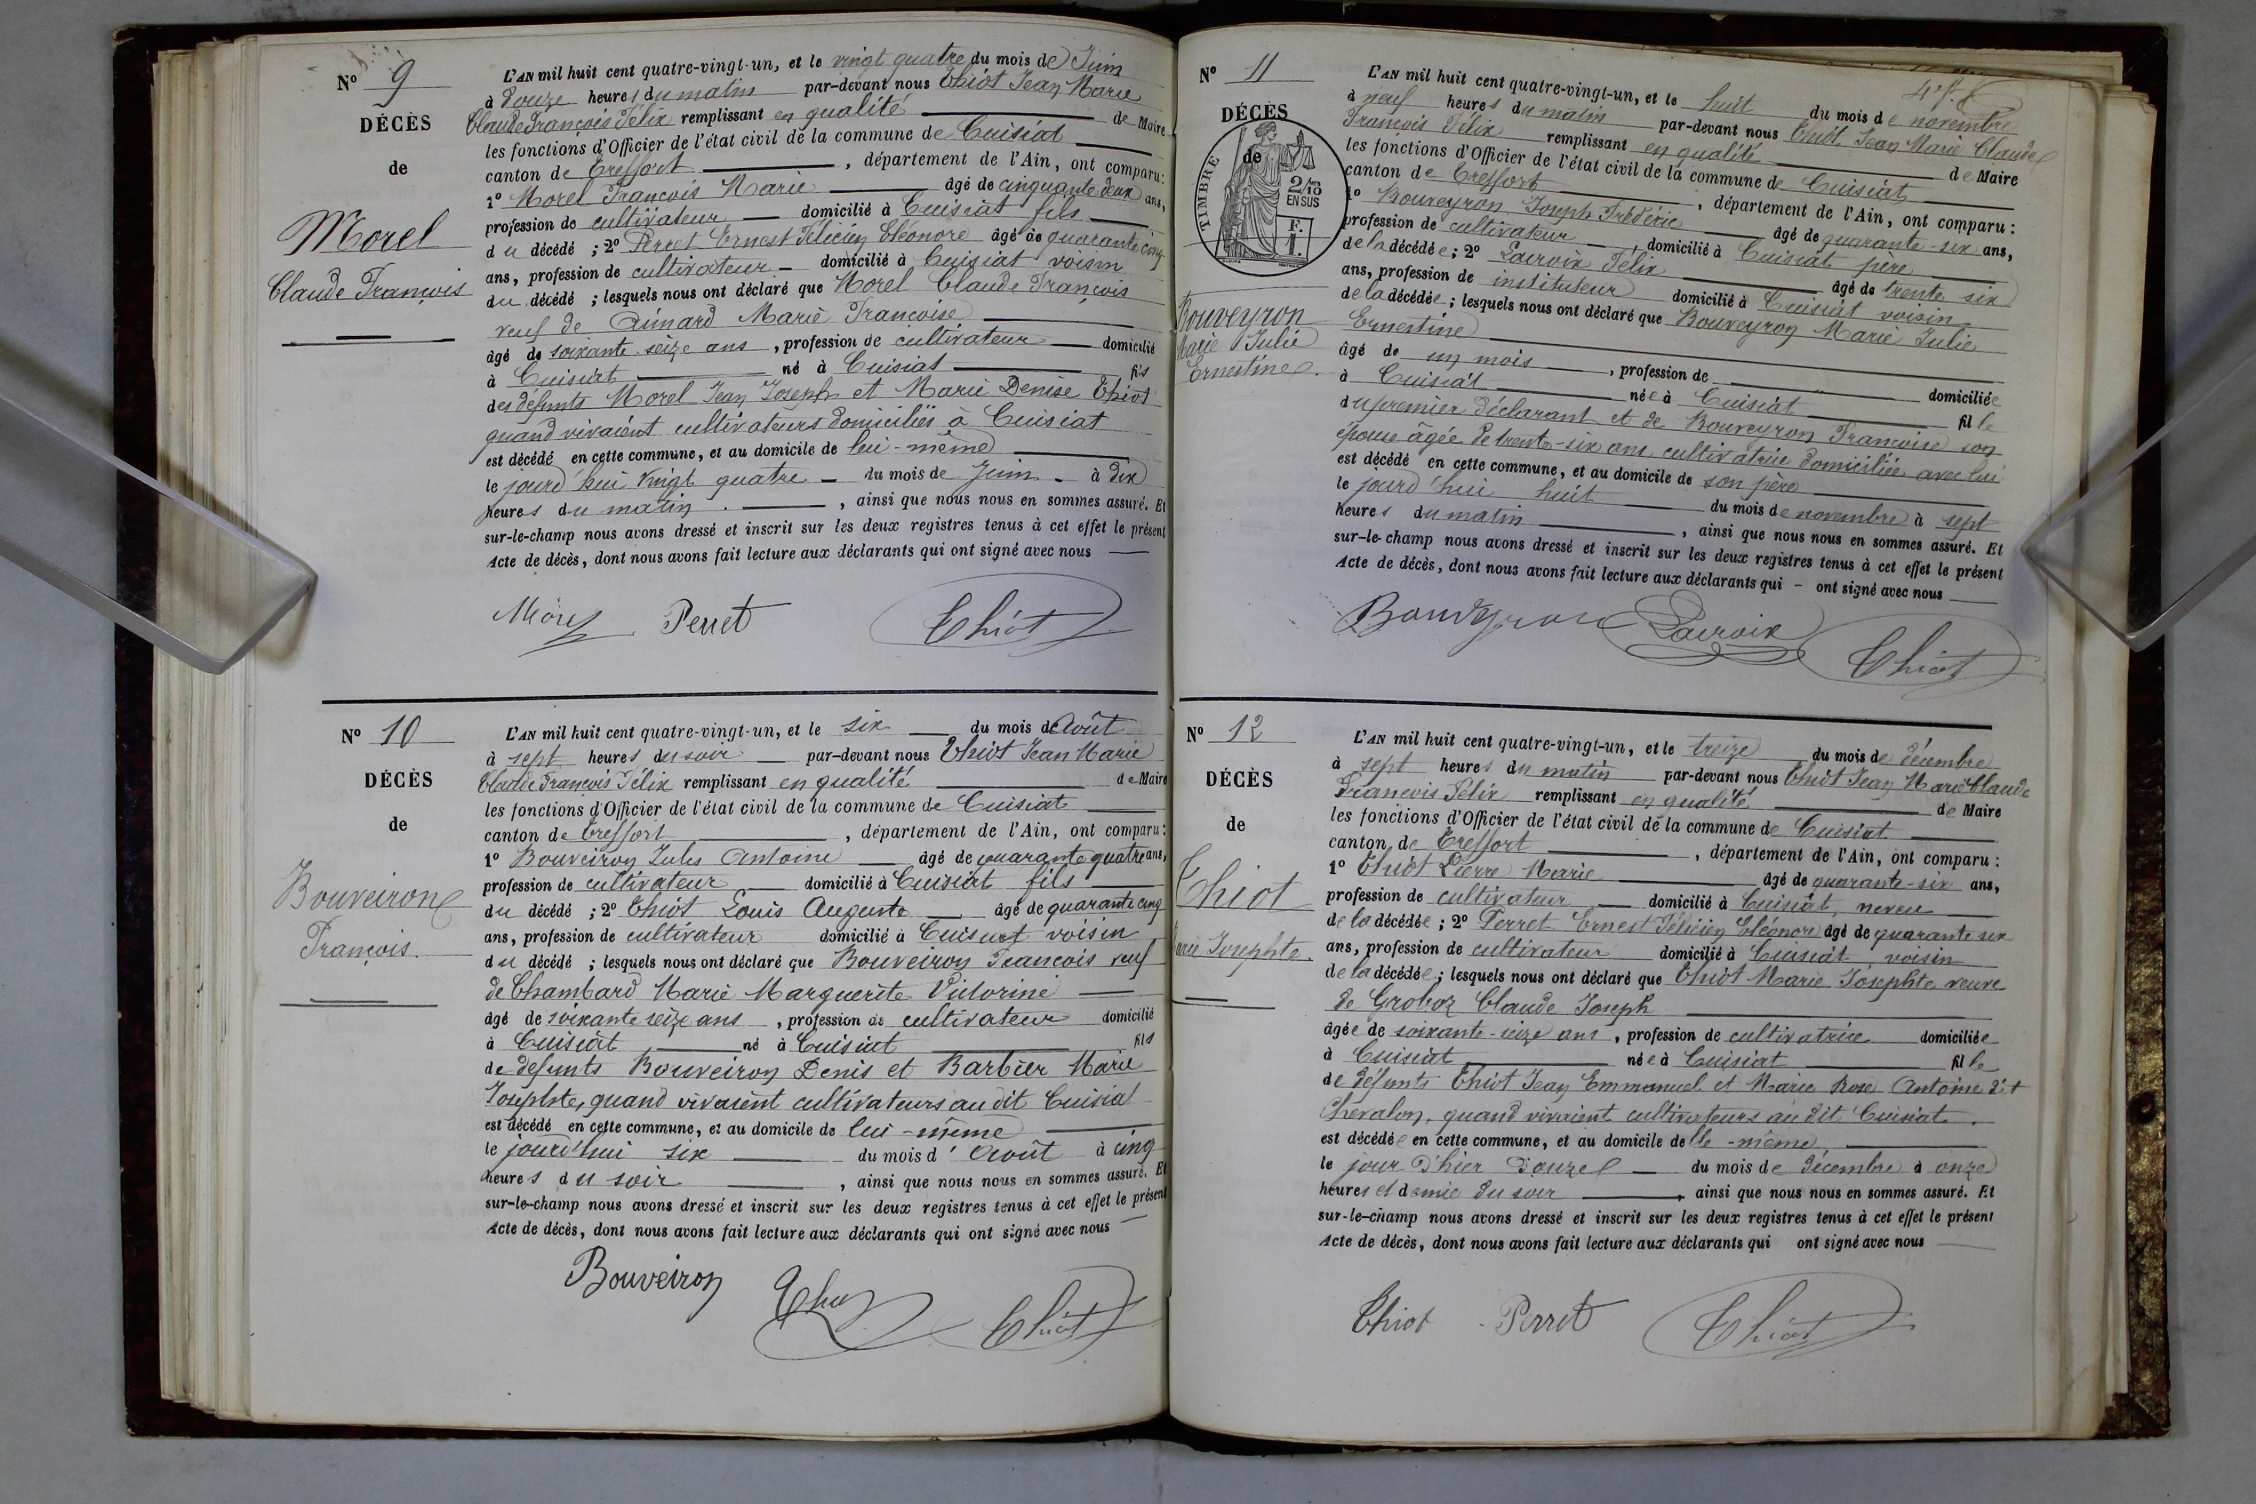 N° 9
DÉCÈS
de
Morel
Claude François
L'AN mil huit cent quatre-vingt-un, et le vingt quatre du mois de Juin
à douze heures du matin par-devant nous Thiot Jean Marie
Claude François Félix remplissant en qualité de Maire
les fonctions d'Officier de l'état civil de la commune de Cuisiat
canton de Treffort, département de l'Ain, ont comparu:
1° Morel François Marie âgé de cinquante deux ans,
profession de cultivateur domicilié à Cuisiat fils
du décédé ; 2° Perret Ernest Félicien Eléonore âgé de quarante cinq
ans, profession de cultivateur domicilié à Cuisiat voisin
du décédé ; lesquels nous ont déclaré que Morel Claude François
veuf de Marie Françoise
âgé de soixante seize ans, profession de cultivateur domicilié
à Cuisiat né à Cuisiat fils
des defunts Morel Jean Joseph et Marie Denise Thiot
quand vivaient cultivateurs domiciliés à Cuisiat
est décédé en cette commune, et au domicile de lui-même
le jourd'hui vingt quatre du mois de Juin à dix
heures du matin, ainsi que nous nous en sommes assuré. Et
sur-le-champ nous avons dressé et inscrit sur les deux registres tenus à cet effet le présent
Acte de décès, dont nous avons fait lecture aux déclarants qui ont signé avec nous
Perret Thiot
N° 10
DÉCÈS
de
Bouveiron
François
L'AN mil huit cent quatre-vingt-un, et le six du mois d'Août
à sept heures du soir par-devant nous Thiot Jean Marie
Claude François Félix remplissant en qualité de Maire
les fonctions d'Officier de l'état civil de la commune de Cuisiat
canton de Treffort, département de l'Ain, ont comparu:
1° Bouveiron Jules Antoine âgé de quarante quatre ans,
profession de cultivateur domicilié à Cuisiat fils
du décédé ; 2° Thiot Louis Auguste âgé de quarante cinq
ans, profession de cultivateur domicilié à Cuisiat voisin
du décédé ; lesquels nous ont déclaré que Bouveiron François veuf
de Chambard Marie Marguerite Victorine
âgé de soixante seize ans, profession de cultivateur domicilié
à Cuisiat né à Cuisiat fils
de defunts Bouveiron Denis et Barbier Marie
Josephte, quand vivaient cultivateurs au dit Cuisiat
est décédé en cette commune, et au domicile de lui-même
le jourd'hui six du mois d'Août à cinq
heures du soir, ainsi que nous nous en sommes assuré. Et
sur-le-champ nous avons dressé et inscrit sur les deux registres tenus à cet effet le présent
Acte de décès, dont nous avons fait lecture aux déclarants qui ont signé avec nous
Bouveiron Thiot
N° 11
DÉCÈS
de
TIMBRE
2/10
EN SUS
F.
1.
Bouveyron
Marie Julie
Ernestine
L'AN mil huit cent quatre-vingt-un, et le huit du mois de novembre
à neuf heures du matin par-devant nous Thiot Jean Marie Claude
François Félix remplissant en qualité de Maire
les fonctions d'Officier de l'état civil de la commune de Cuisiat
canton de Treffort, département de l'Ain, ont comparu:
1° Bouveyron Joseph Frédéric âgé de quarante-six ans,
profession de cultivateur, domicilié à Cuisiat père
de la décédée ; 2° Lacroix Félix âgé de trente six
ans, profession de instituteur domicilié à Cuisiat voisin
de la décédée ; lesquels nous ont déclaré que Bouveyron Marie Julie
Ernestine
âgé de un mois, profession de domiciliée
à Cuisiat née à Cuisiat fille
du premier déclarant et de Bouveyron Françoise son
épouse âgée de trente-six ans cultivatrice domiciliée avec lui
est décédé en cette commune, et au domicile de son père
le jourd'hui huit du mois de novembre à sept
heures du matin, ainsi que nous nous en sommes assuré. Et
sur-le-champ nous avons dressé et inscrit sur les deux registres tenus à cet effet le présent
Acte de décès, dont nous avons fait lecture aux déclarants qui - ont signé avec nous
Bouveyron Lacroix Thiot
N° 12
DÉCÈS
de
Thiot
Marie Josephte
L'AN mil huit cent quatre-vingt-un, et le treize du mois de décembre
à sept heures du matin par-devant nous Thiot Jean Marie Claude
François Félix remplissant en qualité de Maire
les fonctions d'Officier de l'état civil de la commune de Cuisiat
canton de Treffort, département de l'Ain, ont comparu:
1° Thiot Pierre Marie âgé de quarante-six ans,
profession de cultivateur domicilié à Cuisiat, neveu
de la décédée ; 2° Perret Ernest Félicien Eléonore âgé de quarante six
ans, profession de cultivateur domicilié à Cuisiat voisin
de la décédée ; lesquels nous ont déclaré que Thiot Marie Josephte veuve
de Groboz Claude Joseph
âgée de soixante-seize ans, profession de cultivatrice domiciliée
à Cuisiat née à Cuisiat fille
de défunts Thiot Jean Emmanuel et Marie Rose Antoine dit
Chevalon, quand vivaient cultivateurs au dit Cuisiat.
est décédée en cette commune, et au domicile d'elle-même
le jour d'hier douze du mois de décembre à onze
heures et demie du soir, ainsi que nous nous en sommes assuré. Et
sur-le-champ nous avons dressé et inscrit sur les deux registres tenus à cet effet le présent
Acte de décès, dont nous avons fait lecture aux déclarants qui ont signé avec nous
Thiot Perret Thiot